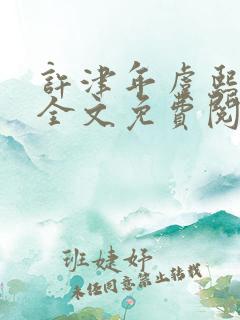 許津年虞熙
全文免費閱
班婕妤
未经同意禁止转载